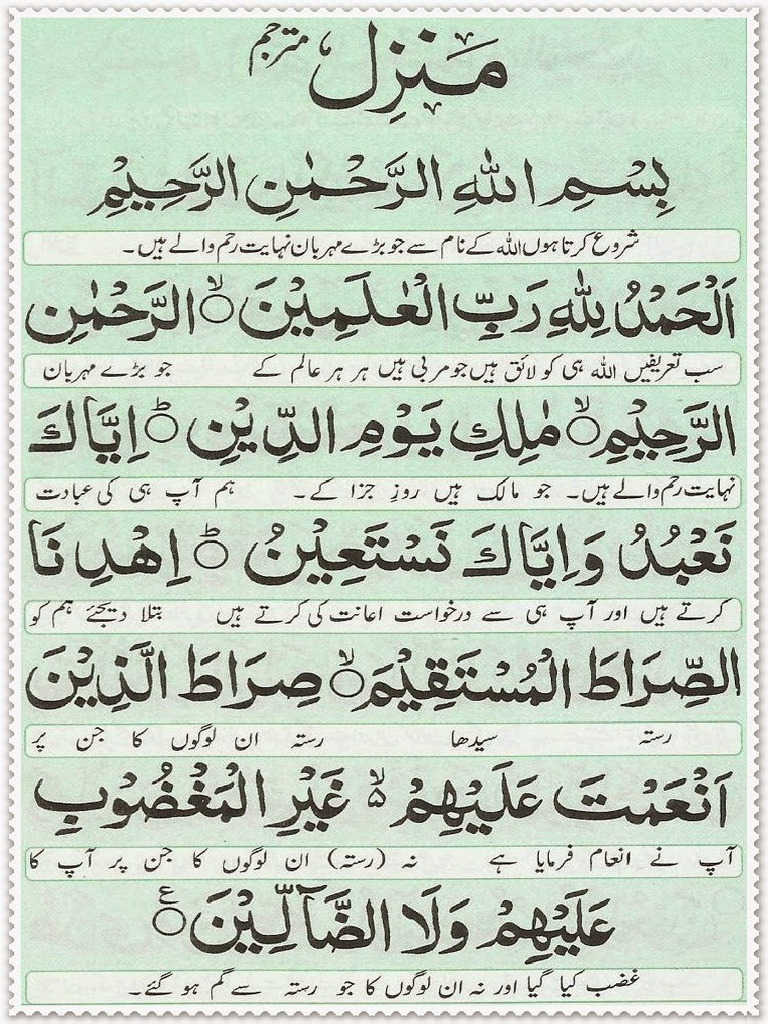 مَنزِل مترجم
بِسْمِ اللهِ الرَّحْمٰنِ الرَّحِيْمِ
شروع کرتا ہوں اللہ کے نام سے جو بڑے مہربان نہایت رحم والے ہیں۔
اَلْحَمْدُ لِلهِ رَبِّ الْعٰلَمِيْنَ ۙ الرَّحْمٰنِ
سب تعریفیں اللہ ہی کو لائق ہیں جو مربی ہیں ہر ہر عالم کے جو بڑے مہربان
الرَّحِيْمِ ۙ مٰلِكِ يَوْمِ الدِّيْنِ ؕ اِيَّاكَ
نہایت رحم والے ہیں۔ جو مالک ہیں روزِ جزا کے۔ ہم آپ ہی کی عبادت
نَعْبُدُ وَاِيَّاكَ نَسْتَعِيْنُ ؕ اِهْدِنَا
کرتے ہیں اور آپ ہی سے درخواست اعانت کی کرتے ہیں بتلا دیجئے ہم کو
الصِّرَاطَ الْمُسْتَقِيْمَ ۙ صِرَاطَ الَّذِيْنَ
رستہ سیدھا رستہ ان لوگوں کا جن پر
اَنْعَمْتَ عَلَيْهِمْ ۙ۵ غَيْرِ الْمَغْضُوْبِ
آپ نے انعام فرمایا ہے نہ (رستہ) ان لوگوں کا جن پر آپ کا
عَلَيْهِمْ وَلَا الضَّآلِّيْنَ ع
غضب کیا گیا اور نہ ان لوگوں کا جو رستہ سے گم ہو گئے۔